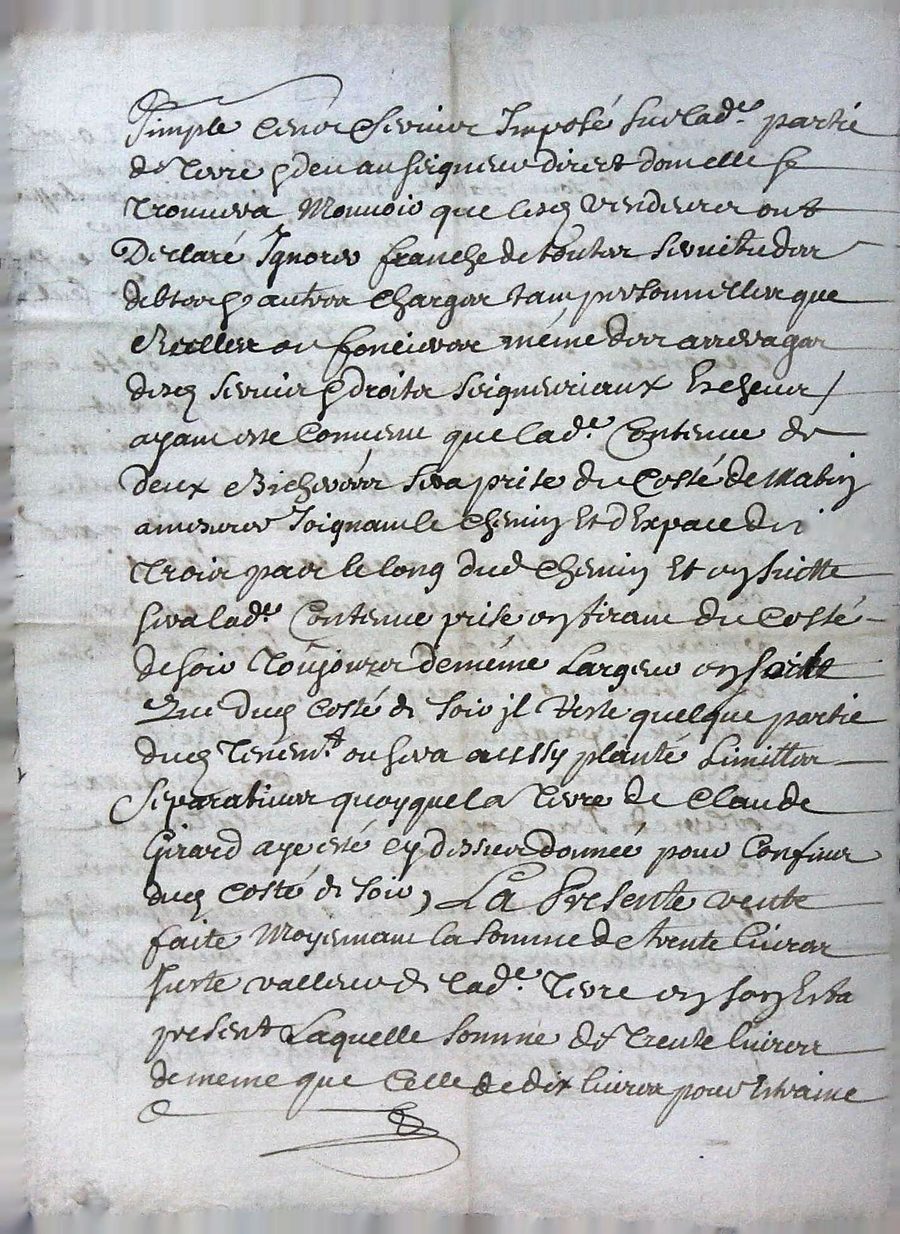 Simple Cens Servis Imposé sur lad.e partie
de Terre & deu au seigneur direct dont elle se
trouvera Mouvoir que lesd vendeurs ont
Declaré Ignorer franche de toutes servitudes
debtes & autres charges tant personnelles que
Reelles ou foncieres méme des arrerages
desd servis & droits seigneuriaux Escheus /
ayant esté Convenu que lad.e Contenue de
deux Bicherées sera prise du Costé de Matin
a mesurer Joignant le chemin Et d'Espace de
trois par le long dud chemin Et en suitte
sera lad.e Contenue prise en tirant du Costé
de soir Toûjours de méme Largeur en sorte
Que dud Costé de soir jl reste quelque partie
dud tenem.t ou sera aussy planté Limittes
separatives quoyque la Terre de Claude
Girard aye esté cy dessus donnée pour Confins
dud Costé de soir, La Presente vente
faite Moyennant la somme de trente livres
juste valleur de lad.e Terre en son Estat
present Laquelle somme de trente livres
de meme que Celle de dix livres pour Estraine